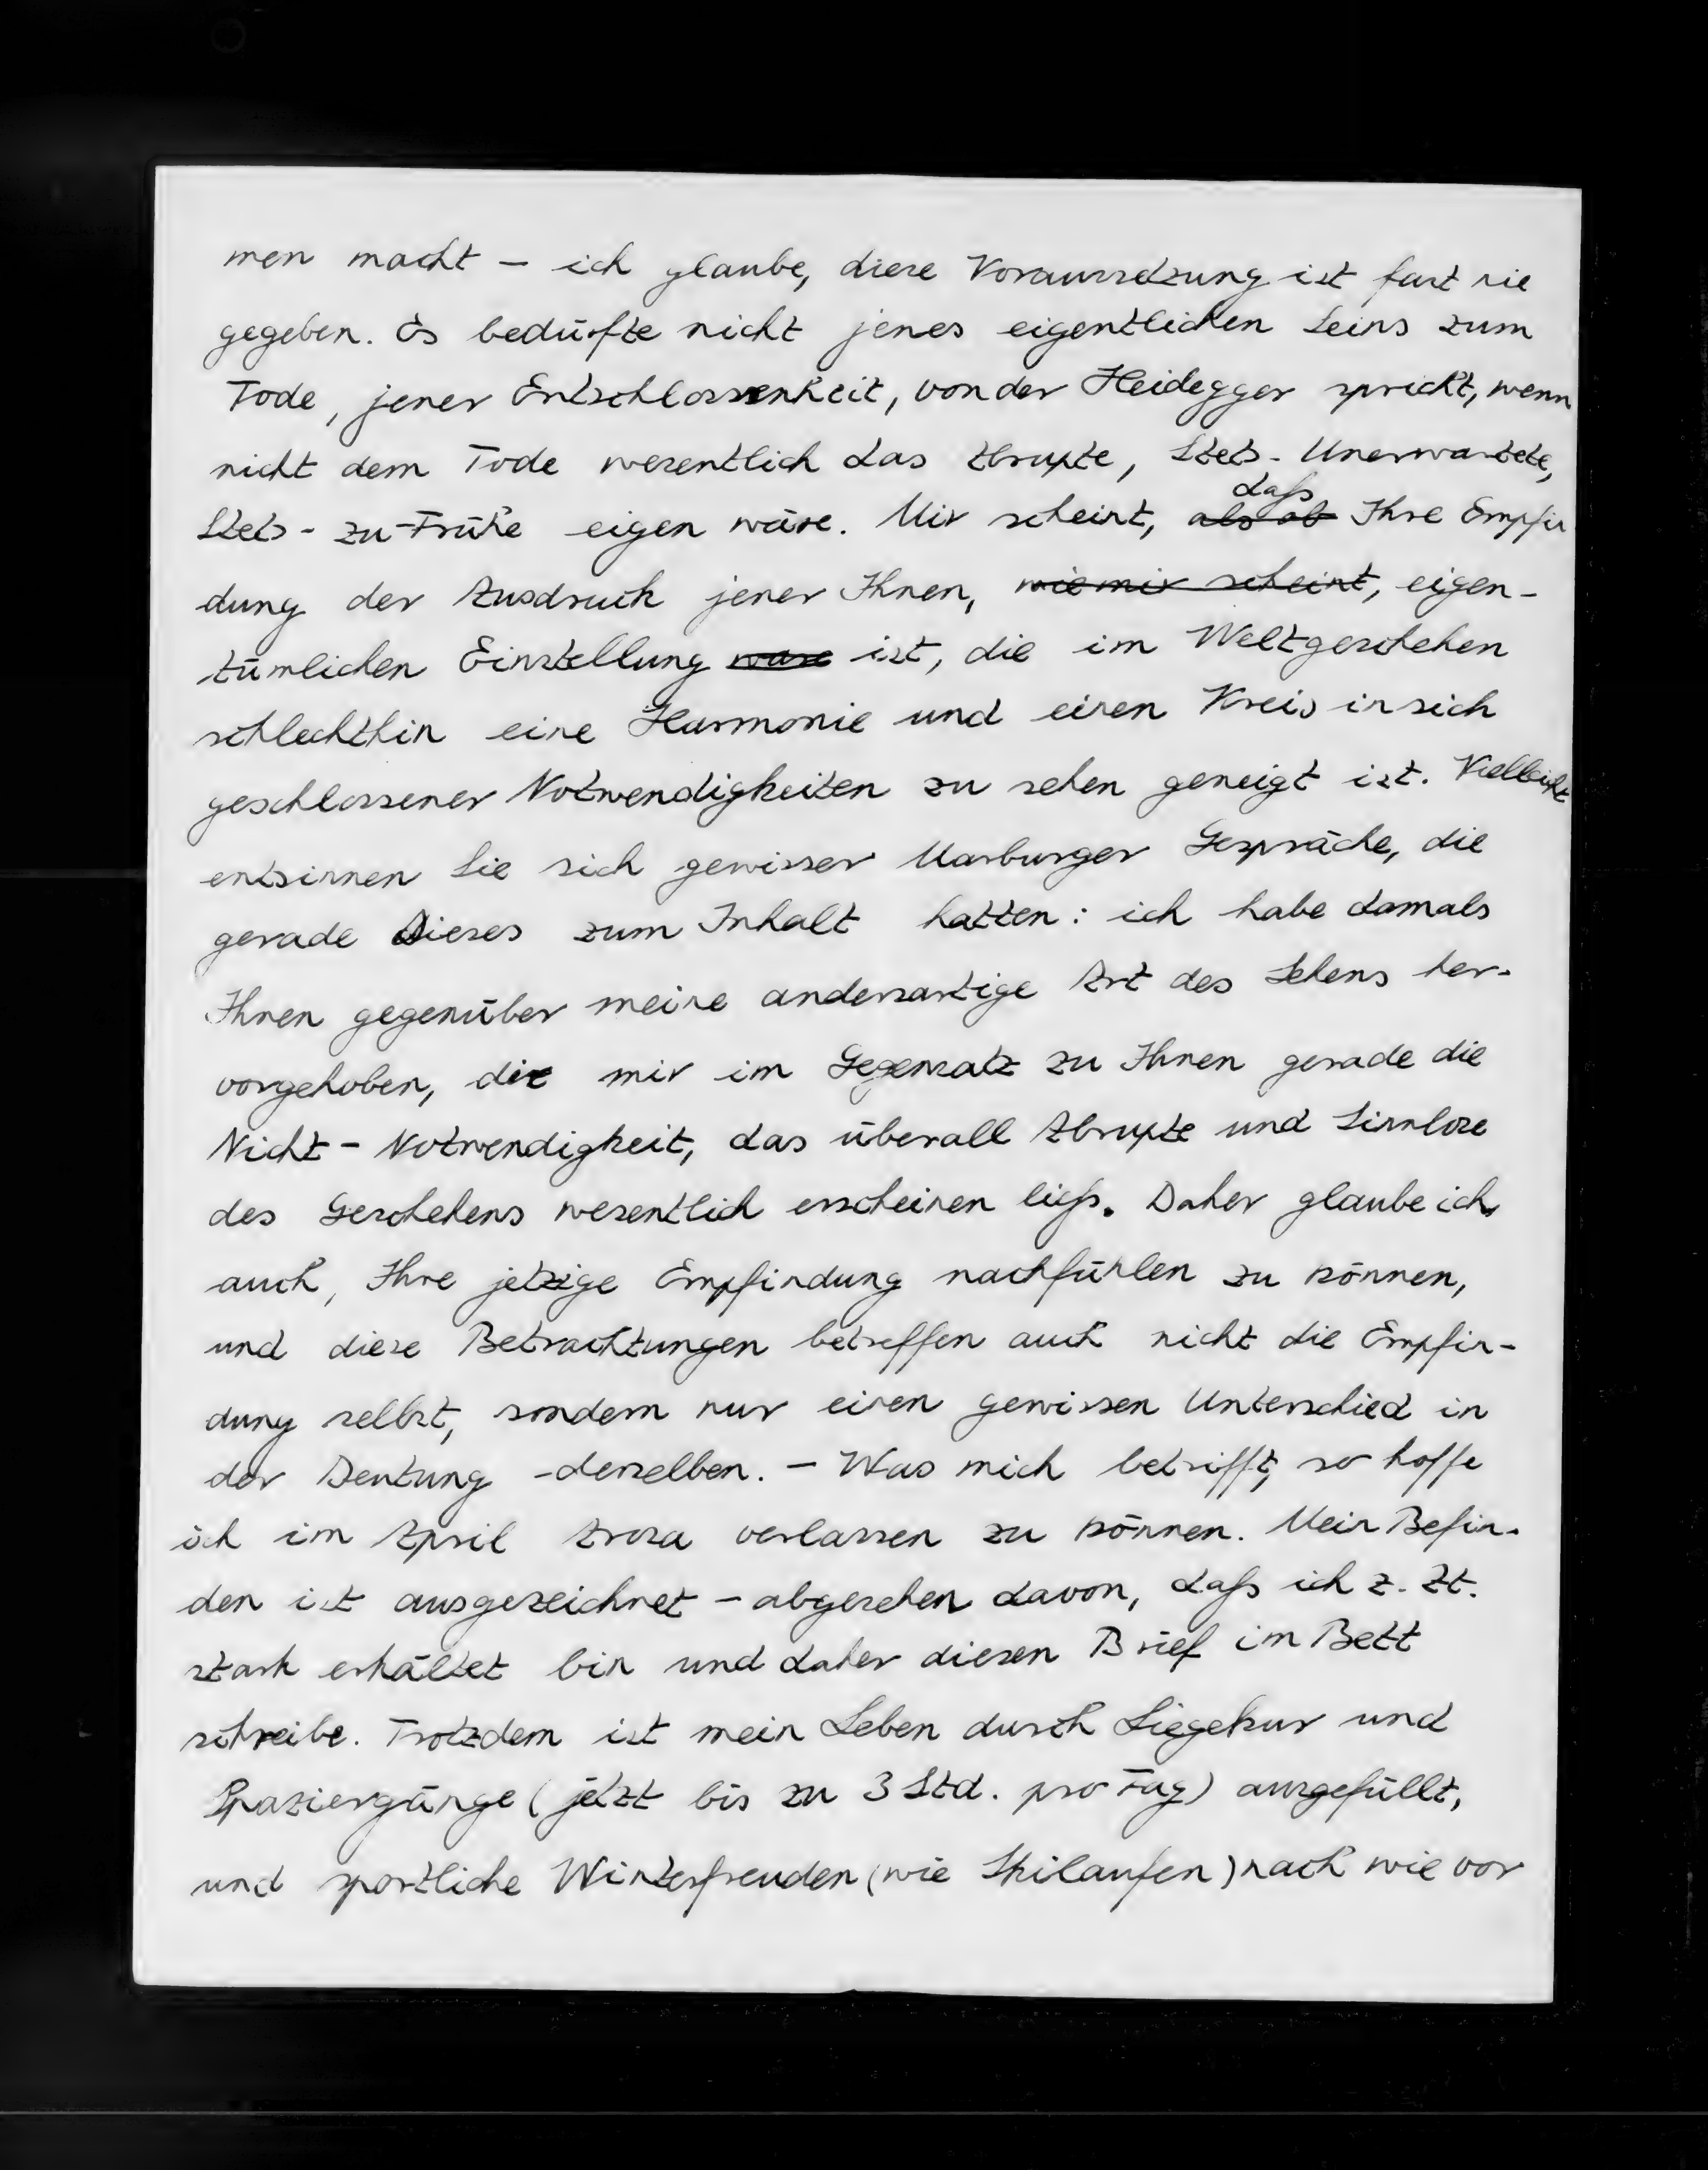 men macht – ich glaube, diese Voraussetzung ist fast nie
gegeben. Es bedürfte nicht jenes eigentlichen Seins zum
Tode, jener Entschlossenheit, von der Heidegger spricht, wenn
nicht dem Tode wesentlich das Abrupte, Stets-Unerwartete,
Stets-zu-Frühe eigen wäre. Mir scheint, ~~als ob~~ daß Ihre Empfin
dung der Ausdruck jener Ihnen, ~~wie mir scheint~~, eigen-
tümlichen Einstellung ~~wäre~~ ist, die im Weltgeschehen
schlechthin eine Harmonie und einen Kreis in sich
geschlossener Notwendigkeiten zu sehen geneigt ist. Vielleicht
entsinnen Sie sich gewisser Marburger Gespräche, die
gerade Dieses zum Inhalt hatten: ich habe damals
Ihnen gegenüber meine andersartige Art des Sehens her-
vorgehoben, die mir im Gegensatz zu Ihnen gerade die
Nicht-Notwendigkeit, das überall Abrupte und Sinnlose
des Geschehens wesentlich erscheinen ließ. Daher glaube ich
auch, Ihre jetzige Empfindung nachfühlen zu können,
und diese Betrachtungen betreffen auch nicht die Empfin-
dung selbst, sondern nur einen gewissen Unterschied in
der Deutung derselben. – Was mich betrifft, so hoffe
ich im April Arosa verlassen zu können. Mein Befin-
den ist ausgezeichnet – abgesehen davon, daß ich z. Zt.
stark erkältet bin und daher diesen Brief im Bett
schreibe. Trotzdem ist mein Leben durch Liegekur und
Spaziergänge (jetzt bis zu 3 Std. pro Tag) ausgefüllt,
und sportliche Winterfreuden (wie Skilaufen) nach wie vor